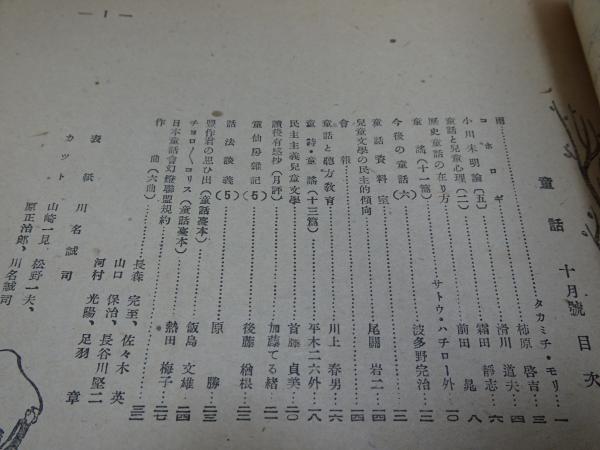 — 1 —
童話 十月號 目次
雨……タカミチ・モリ…一
コホロギ……柿原啓吉…三
小川未明論〔五〕……滑川道夫…四
童話と兒童心理(二)……霜田靜志…六
歷史童話の在り方……前田晁…八
童謠(十一篇)……サトウ・ハチロー外
今後の童話(六)……波多野完治
童話資料室……一四
兒童文學の民主的傾向……尾關岩二…一四
會報……一四
童話と聽方教育……川上春男…一六
童詩・童謠(十三篇)……平木二六外…一八
民主主義兒童文學……首藤貞美…二〇
讀後有感抄(月評)……加藤てる緒…二一
童仙房雜記(5)……後藤楢根…二三
話法談義(5)……原勝…二三
豐作君の思ひ出(童話臺本)……飯島文雄…二四
チヨロ〱コリス(童話臺本)……熱田梅子…二七
日本童話會幻燈聯盟規約
作曲(六曲)……三三
長森完至、佐々木英
山口保治、長谷川堅二
河村光陽、足羽章
表紙 川名誠司
カット 山崎一見、松野一夫、
原正治郎、川名誠司